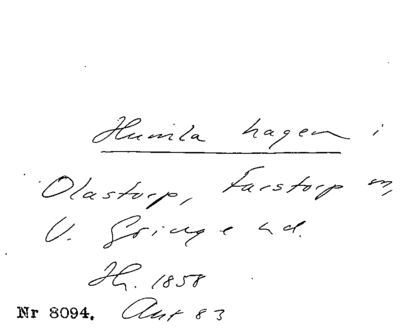 Humla hagen i
Olastorp, Farstorp sn,
V. Göinge hd.
Jh. 1858
Nr 8094. Akt 83